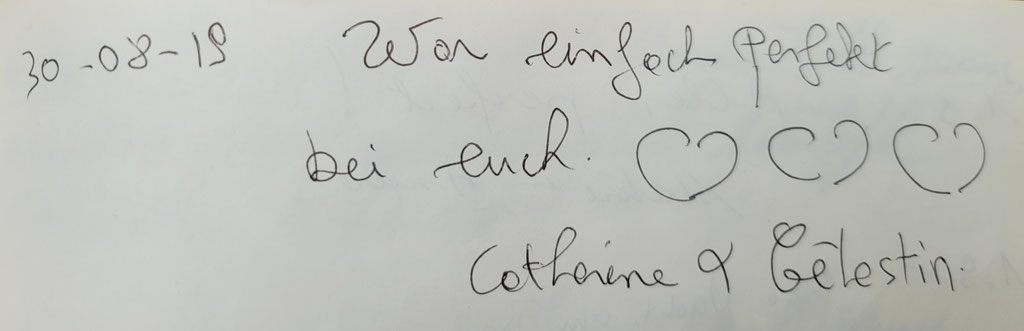 30-08-19 War einfach perfekt
bei euch. ♡ ♡ ♡
Catherine & Célestin.